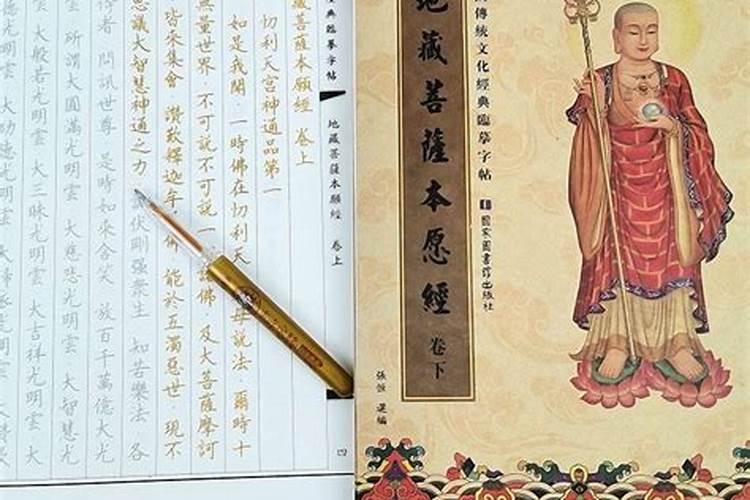 傳統文化經典臨摹字帖
國家圖書館出版社
地藏菩薩本愿經 卷下
張恆 選編
經典臨摹字帖 地藏菩薩本願經 卷上 四
藏菩薩本願經 卷上
忉利天宮神通品第一
如是我聞 一時佛在忉利天 母說法 爾時十
無量世界 不可說不可說一 諸佛 及大菩薩摩訶
皆來集會 讚歎釋迦牟 佛 能於五濁惡世 現不
思議大智慧神通之力 伏剛强衆生 知苦樂法 各
侍者 問訊世尊 是時如來含笑 放百千萬億大光
所謂大圓滿光明雲 大慈悲光明雲 大智慧光
雲 大般若光明雲 大三昧光明雲 大吉祥光明雲 大
德光明雲 大功德光明雲